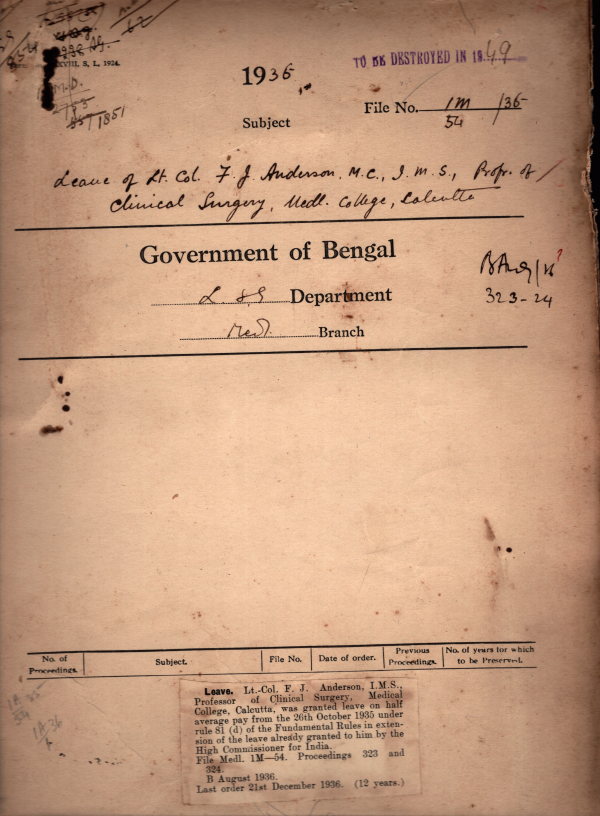 XVIII. S, L, 1924.
TO BE DESTROYED IN 1949
1936
File No. 1M/36
54
Subject
Leave of Lt. Col. F. J. Anderson, M.C., I.M.S., Profr. of
Clinical Surgery, Medl. College, Calcutta
Government of Bengal
B Aug/36
323-24
L S G Department
Med. Branch
No. of Proceedings. Subject. File No. Date of order. Previous Proceedings. No. of years for which to be Preserved.
Leave. Lt.-Col. F. J. Anderson, I.M.S.,
Professor of Clinical Surgery, Medical
College, Calcutta, was granted leave on half
average pay from the 26th October 1935 under
rule 81 (d) of the Fundamental Rules in exten-
sion of the leave already granted to him by the
High Commissioner for India.
File Medl. 1M—54. Proceedings 323 and
324.
B August 1936.
Last order 21st December 1936. (12 years.)